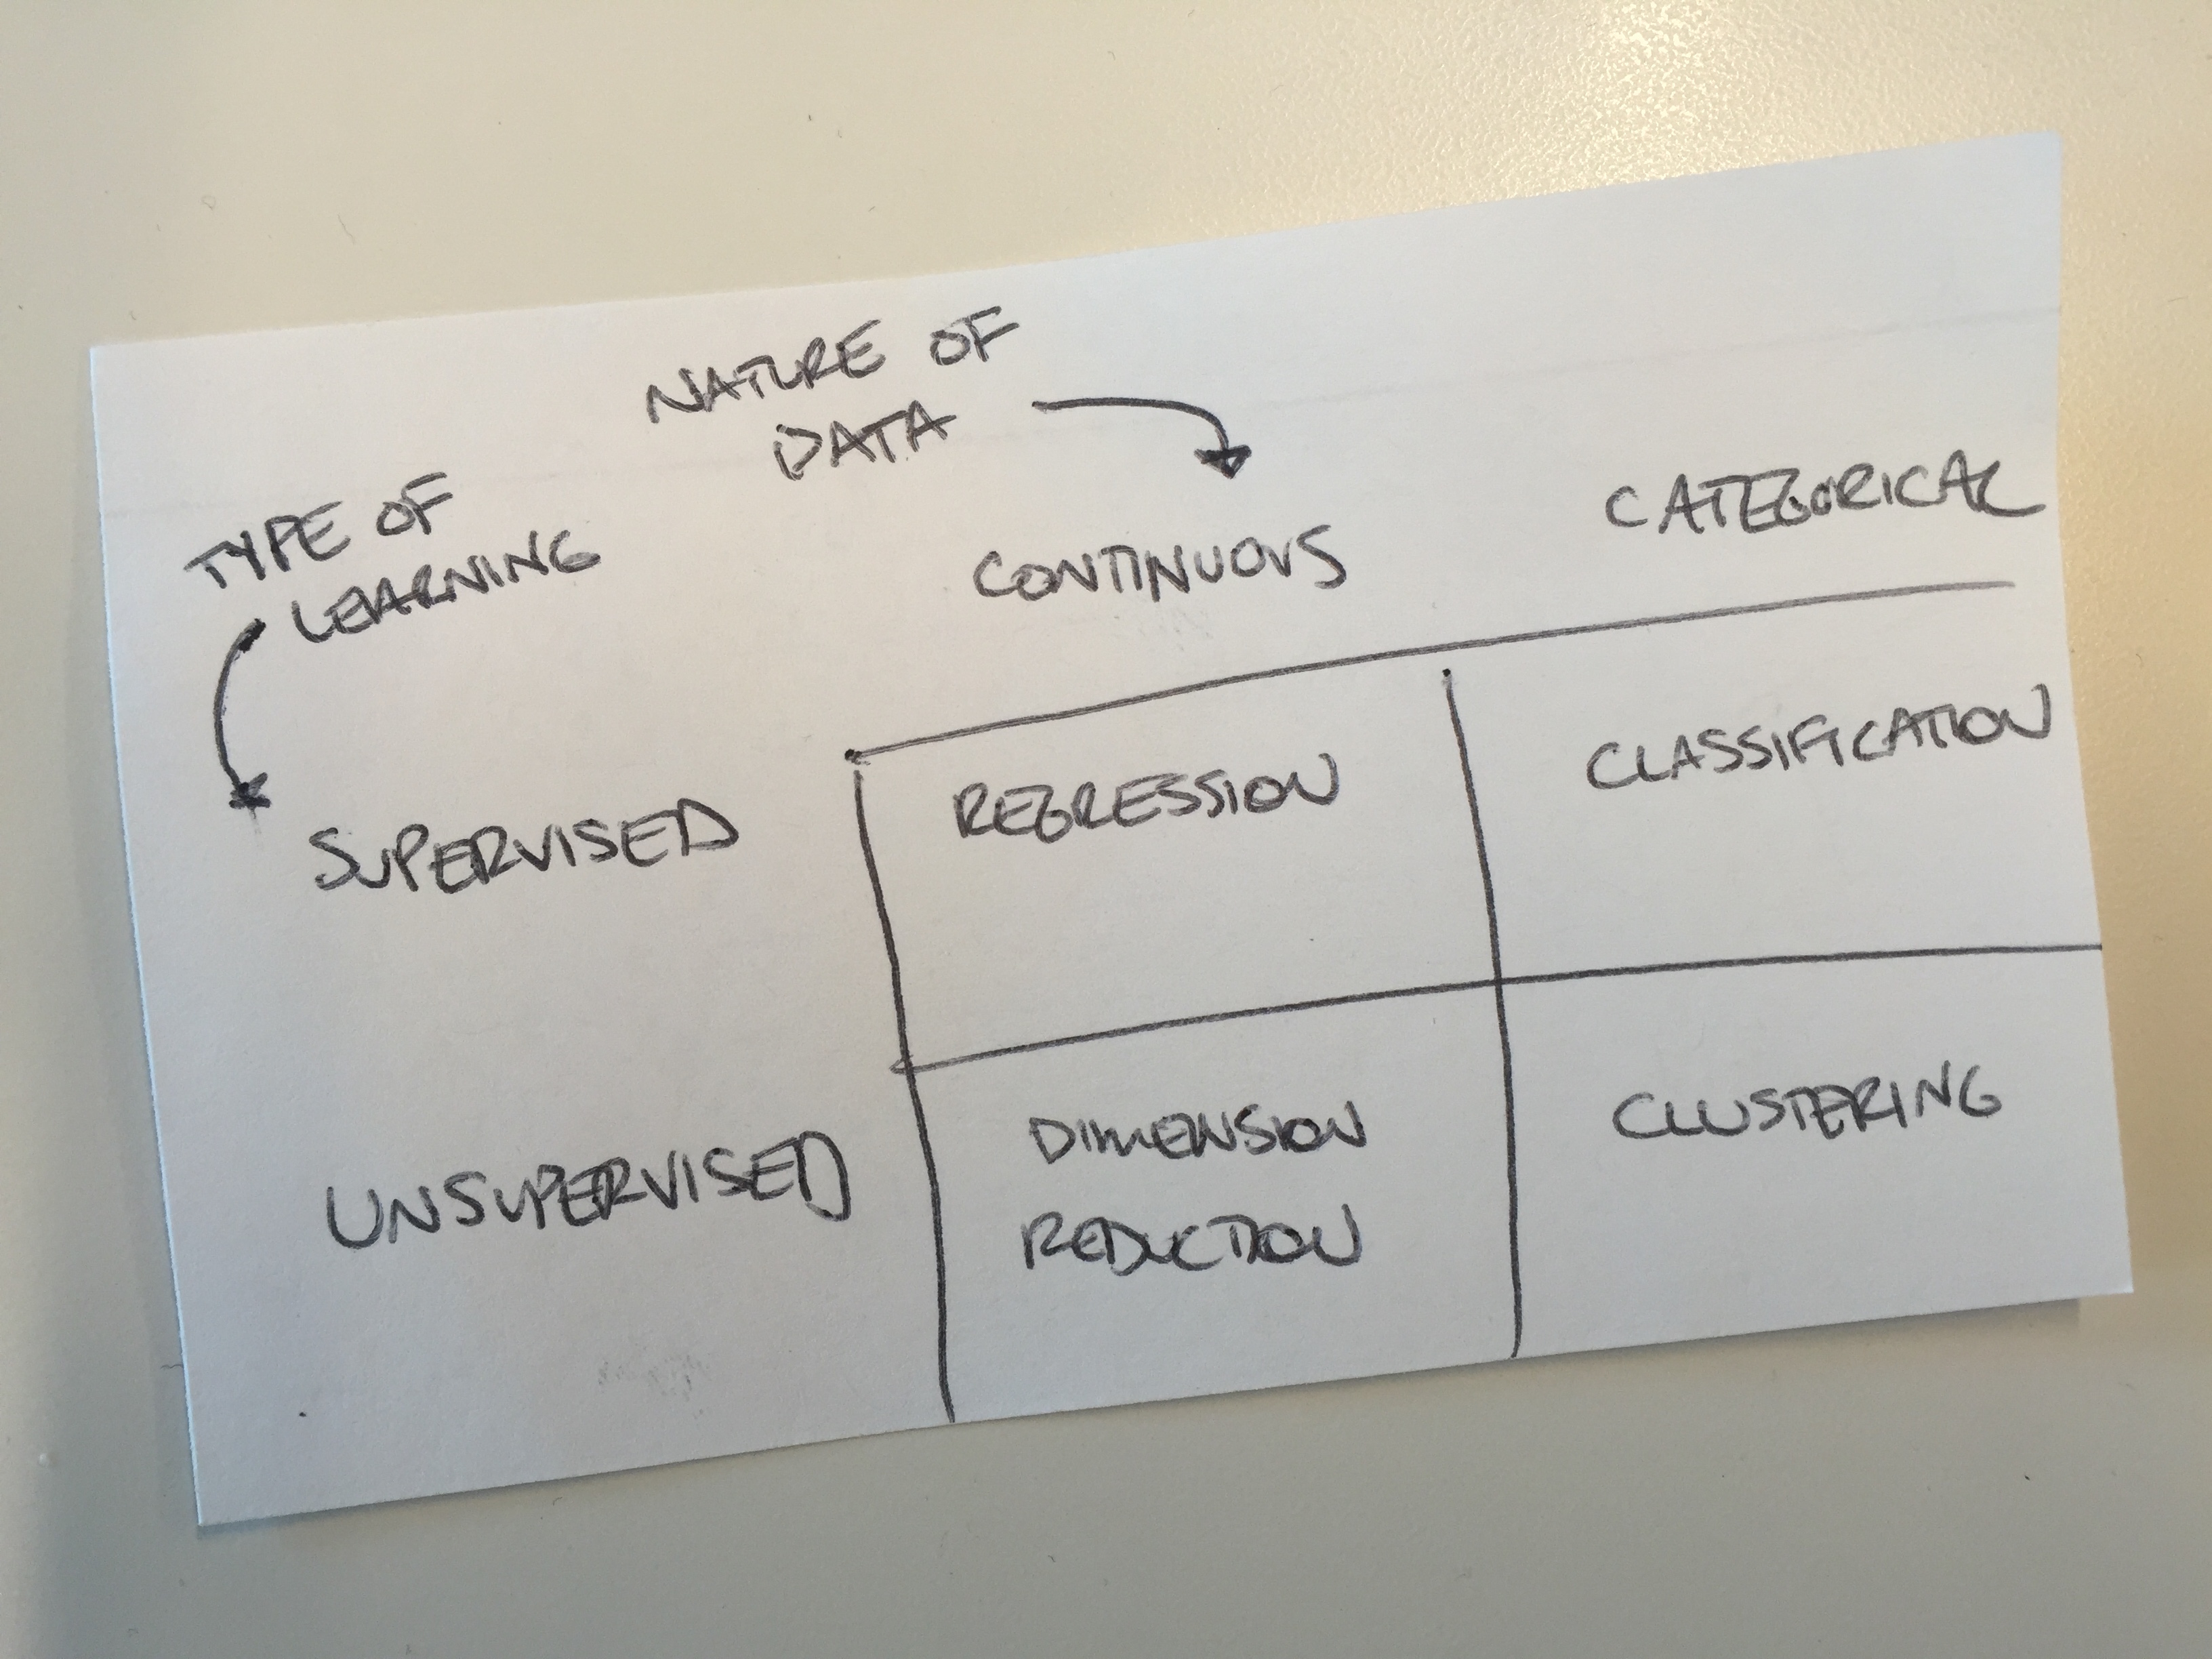 NATURE OF
DATA
TYPE OF
LEARNING
CONTINUOUS CATEGORICAL
SUPERVISED REGRESSION CLASSIFICATION
UNSUPERVISED DIMENSION CLUSTERING
REDUCTION